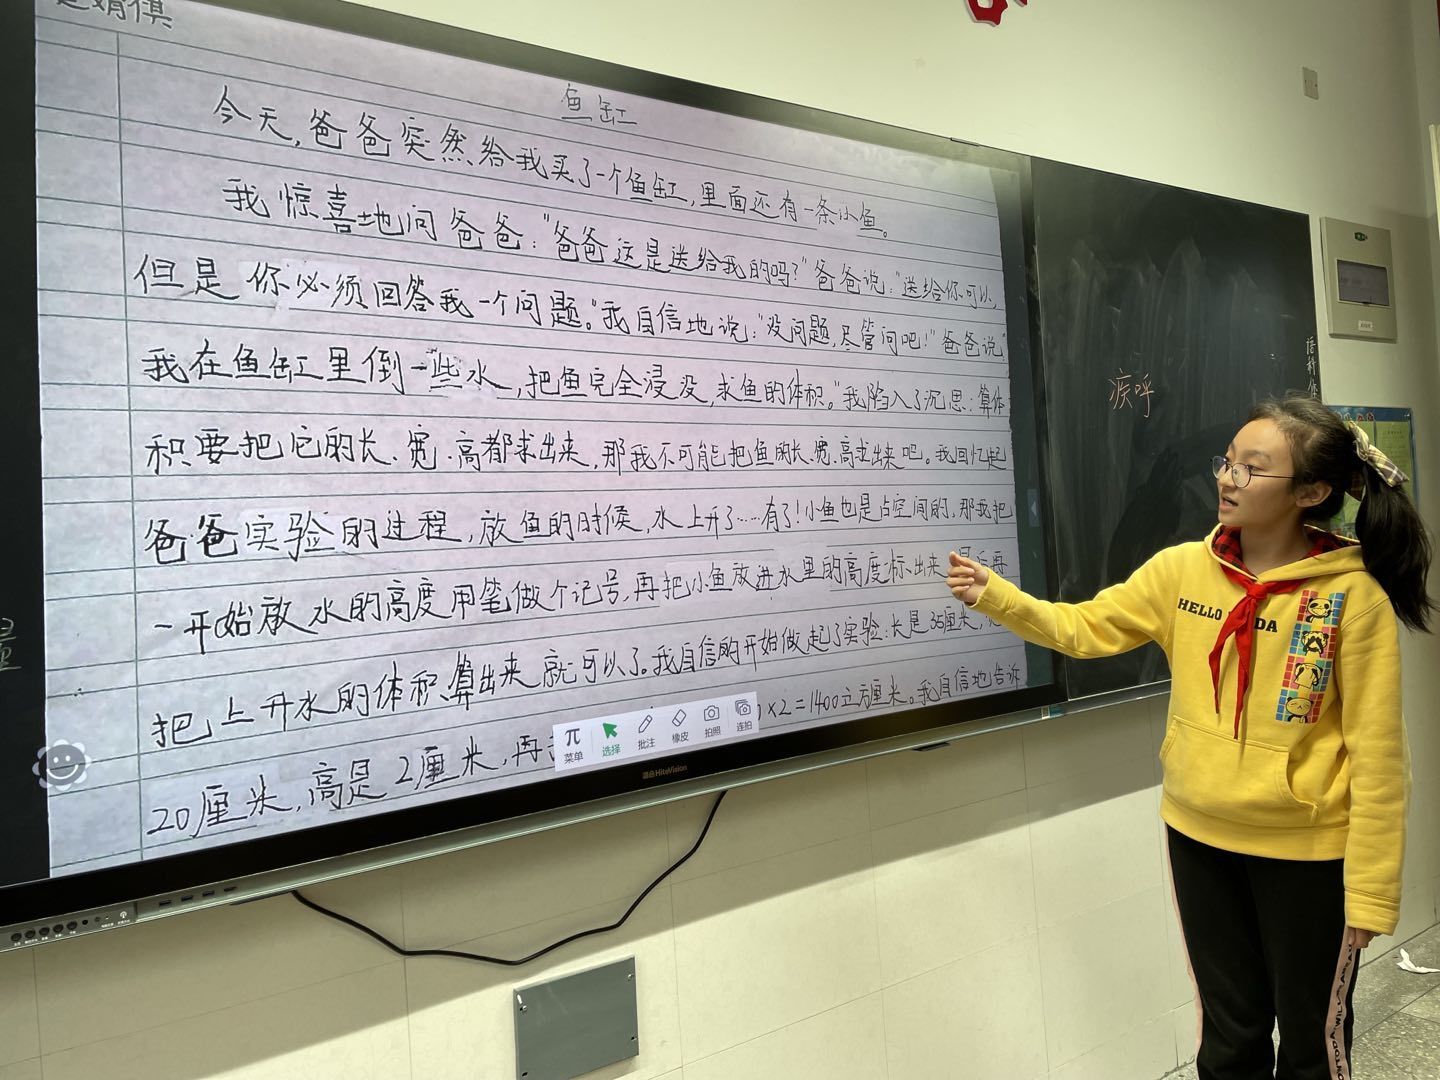 婧倛
鱼缸
今天,爸爸突然给我买了一个鱼缸,里面还有一条小鱼。
我惊喜地问爸爸:“爸爸这是送给我的吗?”爸爸说:“送给你可以,
但是你必须回答我一个问题。”我自信地说:“没问题,尽管问吧!”爸爸说“
我在鱼缸里倒一些水,把鱼完全浸没,求鱼的体积。”我陷入了沉思:算体
积要把它的长、宽、高都求出来,那我不可能把鱼的长、宽、高求出来吧。我回忆起
爸爸实验的过程,放鱼的时候,水上升了……有了!小鱼也是占空间的,那我把
一开始放水的高度用笔做个记号,再把小鱼放进水里的高度标出来
把上升水的体积算出来就可以了。我自信的开始做起了实验:长是35厘米,
20厘米,高是2厘米,再
×2=1400立方厘米。我自信地告诉
π
菜单
选择
批注
橡皮
拍照
连拍
HiteVision
疾呼
语
HELLO
DA
量